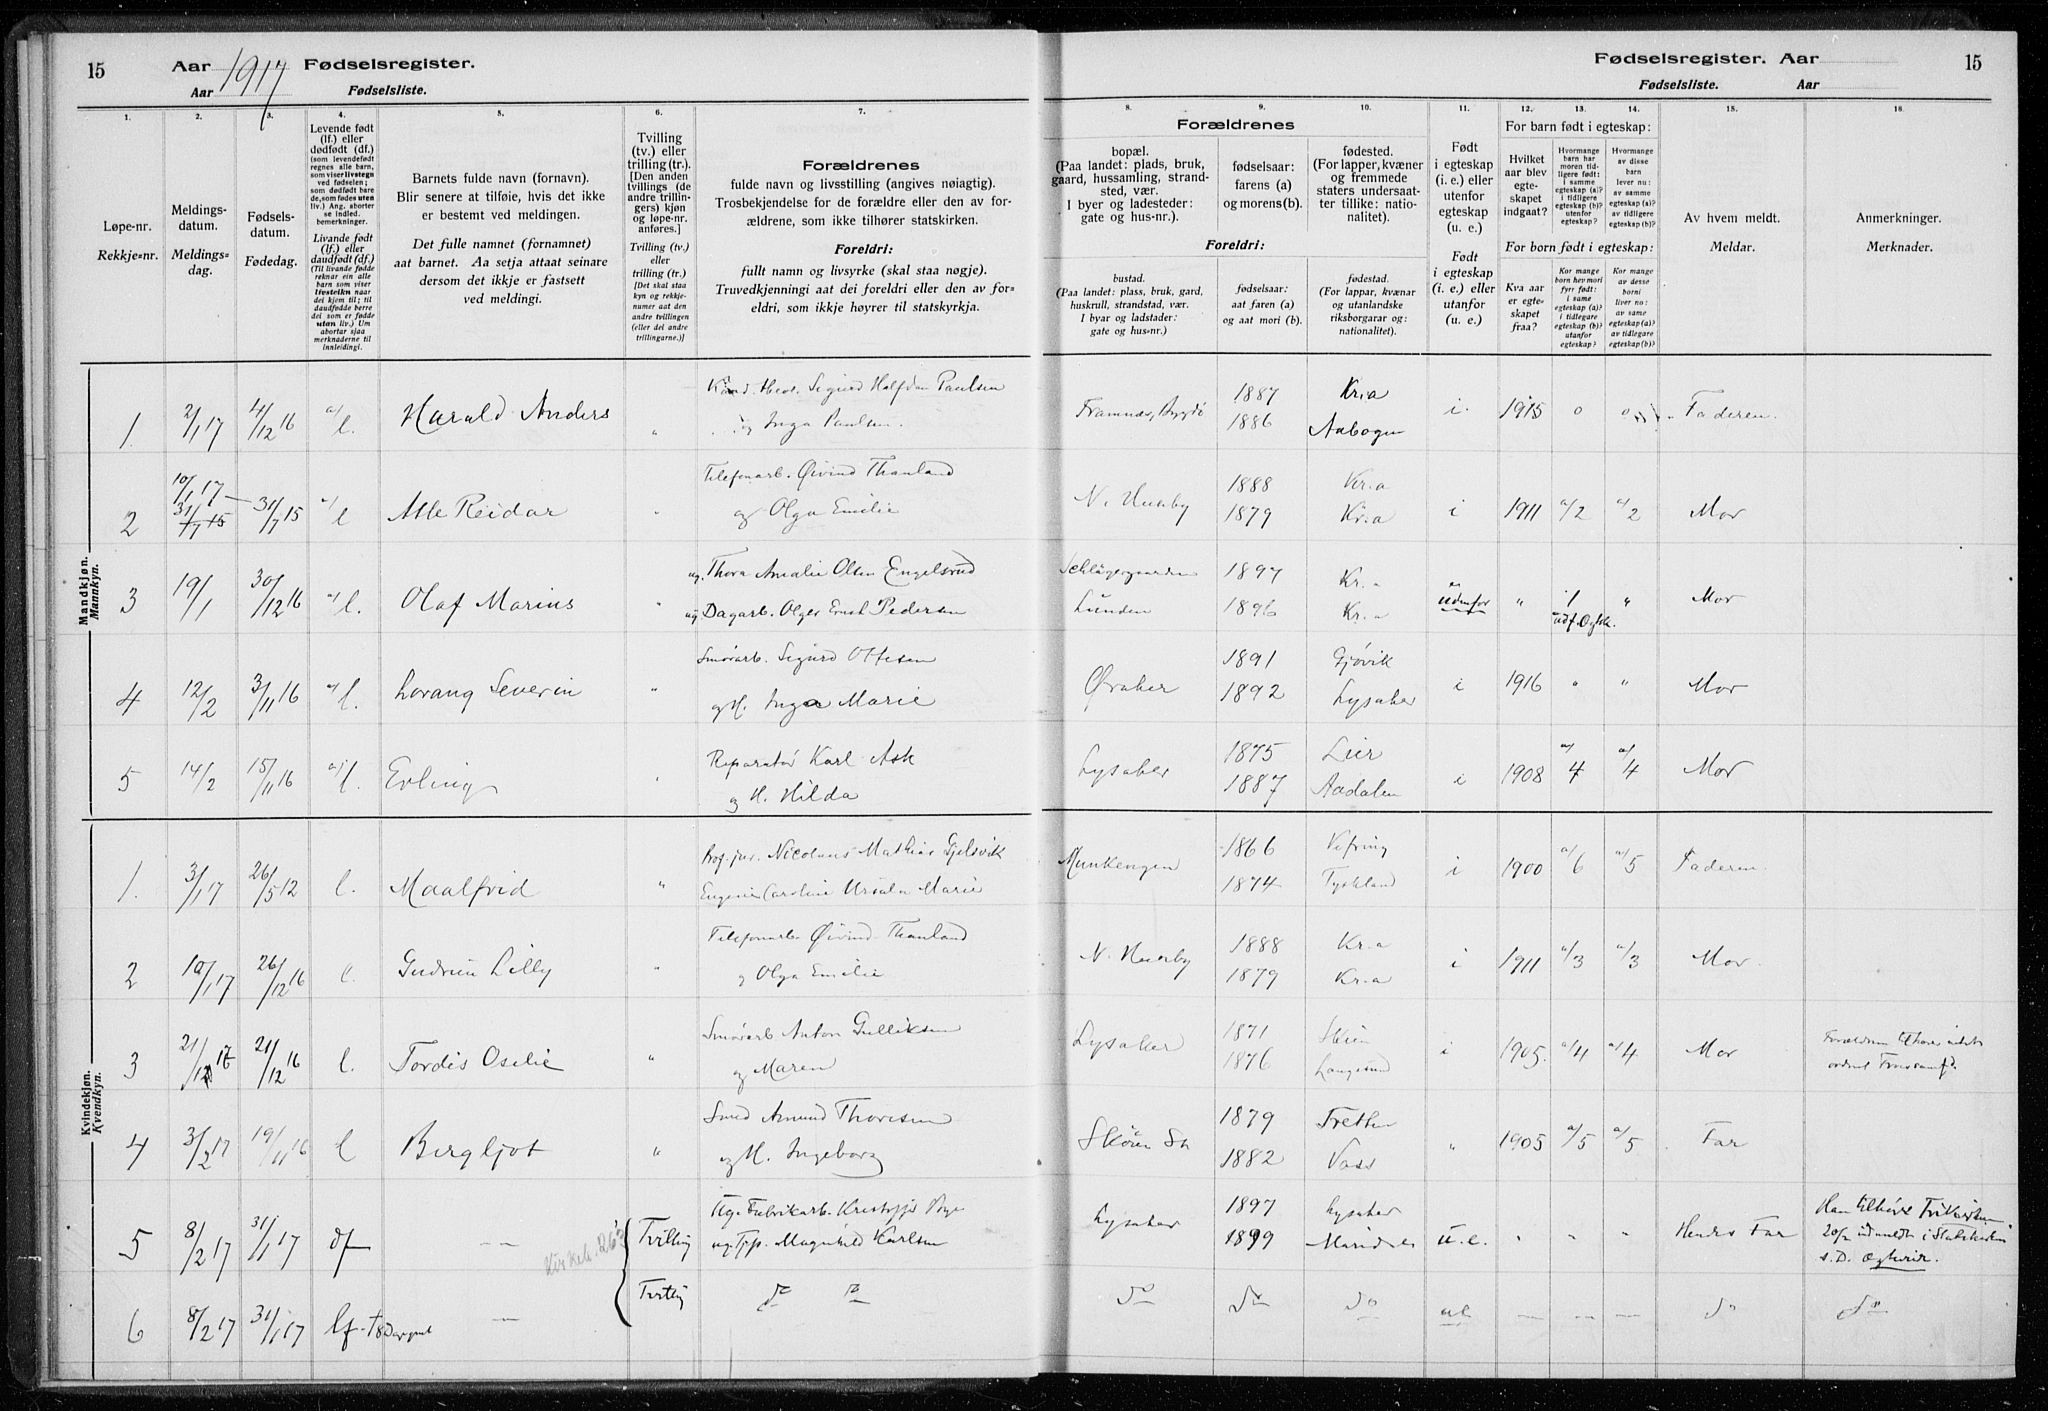 15
Aar 1917 Fødselsregister.
Aar Fødselsliste.
Fødselsregister. Aar
Fødselsliste. Aar
15
1. 2. 3. 4. 5. 6. 7. 8. 9. 10. 11. 12. 13. 14. 15. 16.
Løpe-nr.
Rekkje=nr.
Meldings-
datum.
Meldings=
dag.
Fødsels-
datum.
Fødedag.
Levende født
(lf.) eller
dødfødt (df.)
(som levendefødt
regnes alle barn,
som viser livstegn
ved fødselen;
som dødfødt bare
de, som fødes uten
liv.) Ang. aborter
se indled.
bemerkninger.
Livande født
(lf.) eller
daudfødt (df.)
(Til livande fødde
reknar ein alle
barn som viser
livsteikn naar
dei kjem til; til
daudfødde berre
dei som er fødde
utan liv.) Um
abortar sjaa
merknaderne til
innleidingi.
Barnets fulde navn (fornavn).
Blir senere at tilføie, hvis det ikke
er bestemt ved meldingen.
Det fulle namnet (fornamnet)
aat barnet. Aa setja attaat seinare
dersom det ikkje er fastsett
ved meldingi.
Tvilling
(tv.) eller
trilling (tr.).
[Den anden
tvillings (de
andre trillin-
gers) kjøn
og løpe-nr.
anføres.]
Tvilling (tv.)
eller
trilling (tr.)
[Det skal staa
kyn og rekkje-
numer aat den
andre tvillingen
(eller dei andre
trillingarne.)]
Forældrenes
fulde navn og livsstilling (angives nøiagtig).
Trosbekjendelse for de forældre eller den av for-
ældrene, som ikke tilhører statskirken.
Foreldri:
fullt namn og livsyrke (skal staa nøgje).
Truvedkjenningi aat dei foreldri eller den av for=
eldri, som ikkje høyrer til statskyrkja.
Forældrenes
bopæl.
(Paa landet: plads, bruk,
gaard, hussamling, strand-
sted, vær.
I byer og ladesteder:
gate og hus-nr.).
fødselsaar:
farens (a)
og morens (b).
fødested.
(For lapper, kvæner
og fremmede
staters undersaat-
ter tillike: natio-
nalitet).
Foreldri:
bustad.
(Paa landet: plass, bruk, gard,
huskrull, strandstad, vær.
I byar og ladstader:
gate og hus=nr.)
fødselsaar:
aat faren (a)
og aat mori (b).
fødestad.
(For lappar, kvænar
og utanlandske
riksborgarar og:
nationalitet).
Født
i egteskap
(i. e.) eller
utenfor
egteskap
(u. e.)
Født
i egteskap
(i. e.) eller
utanfor
egteskap
(u. e.)
For barn født i egteskap:
Hvilket
aar blev
egte-
skapet
indgaat?
Hvormange
barn har
moren tid-
ligere født:
i samme
egteskap (a)?
i tidligere
egteskap (b)?
utenfor
egteskap?
Hvormange
av disse
barn
lever nu:
av samme
egteskap (a)?
av tidligere
egteskap (b)?
For born født i egteskap:
Kva aar
er egte-
skapet
fraa?
Kor mange
born hev mori
fyrr født:
i same
egteskap (a)?
i tidlegare
egteskap (b)?
utanfor
egteskap?
Kor mange
av desse
borni
liver no:
av same
egteskap (a)?
av tidlegare
egteskap (b)?
Av hvem meldt.
Meldar.
Anmerkninger.
Merknader.
Mandkjøn.
Mannkyn.
1. 2/1 17 4/12 16 a/ l. Harald Anders " Kand. theol. Sigurd Halfdan Paulsen og Inga Paulsen. Framnes, Bygdø 1887 1886 Kr.a Aabogen i. 1915 0 0 Faderen.
2 10/1 17 31/7 15 31/7 15 a/ l Atle Reidar " Telefonarb. Øivind Thauland og Olga Emilie N. Huseby 1888 1879 Kr.a Kr.a i 1911 a/2 a/2 Mor
3 19/1 30/12 16 a/ l. Olaf Marius " ug. Thora Amalie Olsen Engelsrud ug. Dagarb. Olger Ernst Pedersen Schlägergaarden Lunden 1897 1896 Kr.a Kr.a udenfor " 1 udf. Egtsk. " Mor
4 12/2 3/11 16 a/ l. Lorang Severin " Smørarb. Sigurd Ottesen og H. Inga Marie Øraker 1891 1892 Gjøvik Lysaker i 1916 " " Mor
5 14/2 15/11 16 a/ l. Erling " Reparatør Karl Ask og H. Hilda Lysaker 1875 1887 Lier Aadalen i 1908 a/4 a/4 Mor
Kvindekjøn.
Kvendkyn.
1. 3/1 17 26/5 12 l. Maalfrid " Prof. jur. Nicolaus Mathias Gjelsvik Eugenie Caroline Ursula Marie Munkengen 1866 1874 Vefring Tyskland i 1900 a/6 a/5 Faderen.
2 10/1 17 26/12 16 l. Gudrun Lilly " Telefonarb. Øivind Thauland og Olga Emilie N. Huseby 1888 1879 Kr.a Kr.a i 1911 a/3 a/3 Mor
3 21/12 21/12 16 l. Tordis Oselie " Smørarb Anton Gulliksen og Maren Lysaker 1871 1876 Skien Langesund i 1905. a/4 a/4 Mor Forældrene tilhører
4 3/2 17 19/11 16 l Bergljot " Smed Amund Thoresen og H. Ingeborg Skøien St 1879 1882 Tretten Voss " 1905 a/5 a/5 Far
5 8/2 17 31/1 17 df — Kirkeb. 263 Tvilling Ug. Fabrikarb. Kristoffer ug. Tjp. Magnhild Karlsen Lysaker 1897 1899 Lysaker Maridalen u.e. " " " Hendes Far Han tilhører Frikirken. 20/2 indmeldt i Statskirken s.D. Egteviet.
6 8/2 17 31/1 17 lf — Tvillig do do do do do ue — — — do do